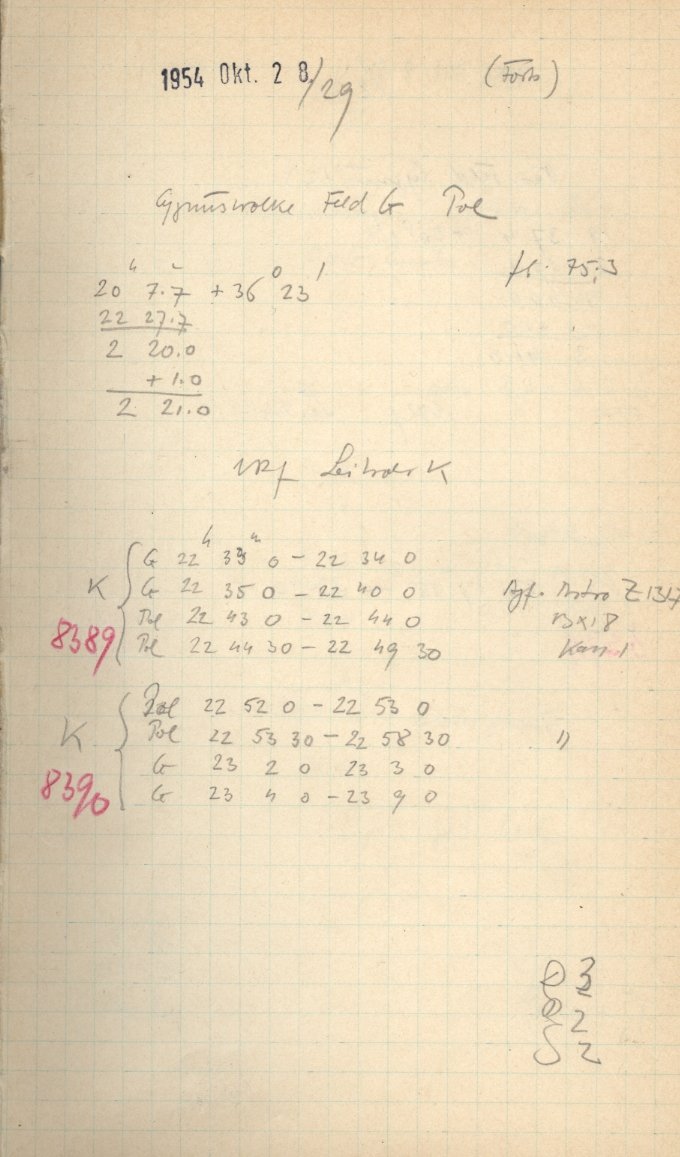 1954 Okt. 28/29 (Forts)
Cygnuswolke Feld G Pol
20ʰ 7.7ᵐ + 36° 23' fl. 75.3
22 27.7
2 20.0
+ 1.0
2 21.0
K
G 22ʰ 33ᵐ 0 - 22 34 0
G 22 35 0 - 22 40 0 Agf. Astro Z
Pol 22 43 0 - 22 44 0
8389
Pol 22 44 30 - 22 49 30
Pol 22 52 0 - 22 53 0
K
Pol 22 53 30 - 22 58 30 "
G 23 2 0 23 3 0
8390
G 23 4 0 - 23 9 0
3
2
2